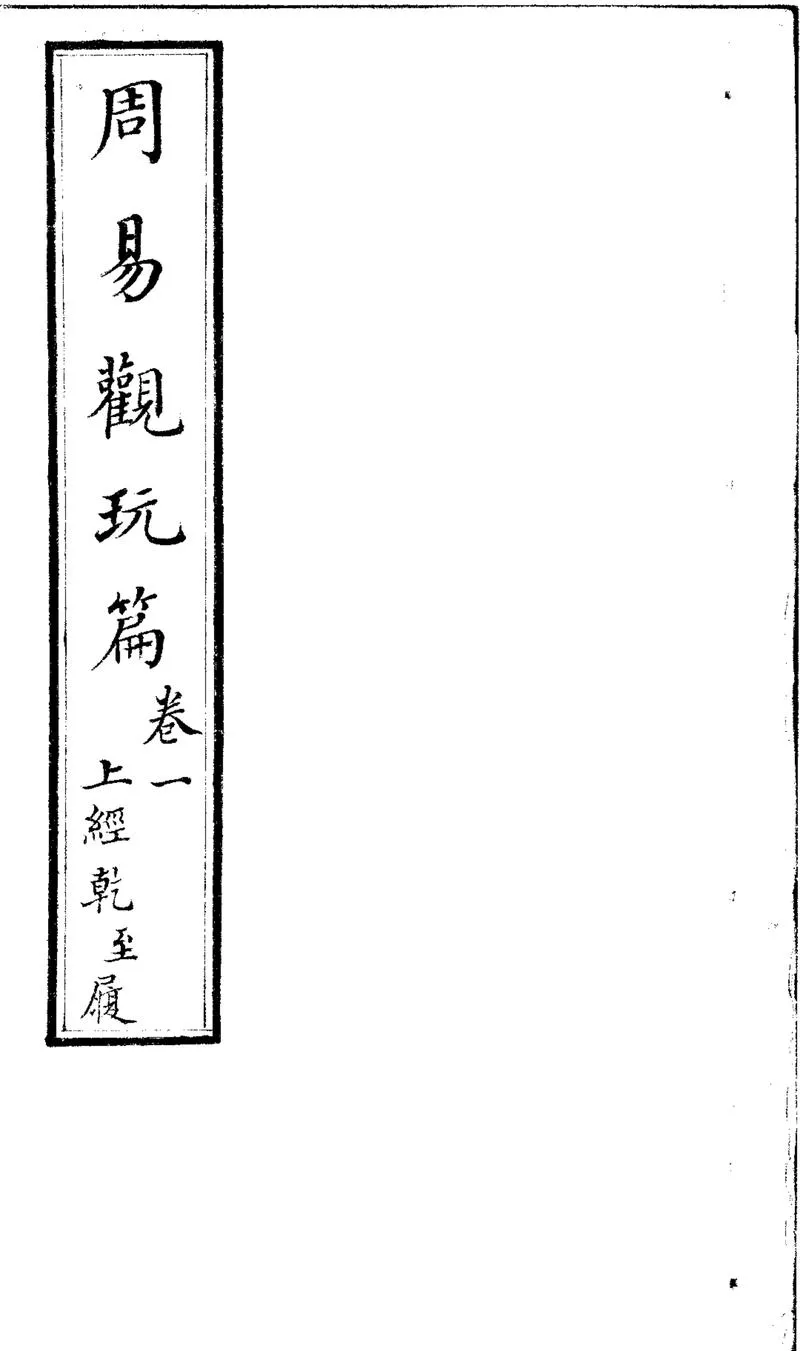 周易觀玩篇
卷一
上經乾至履